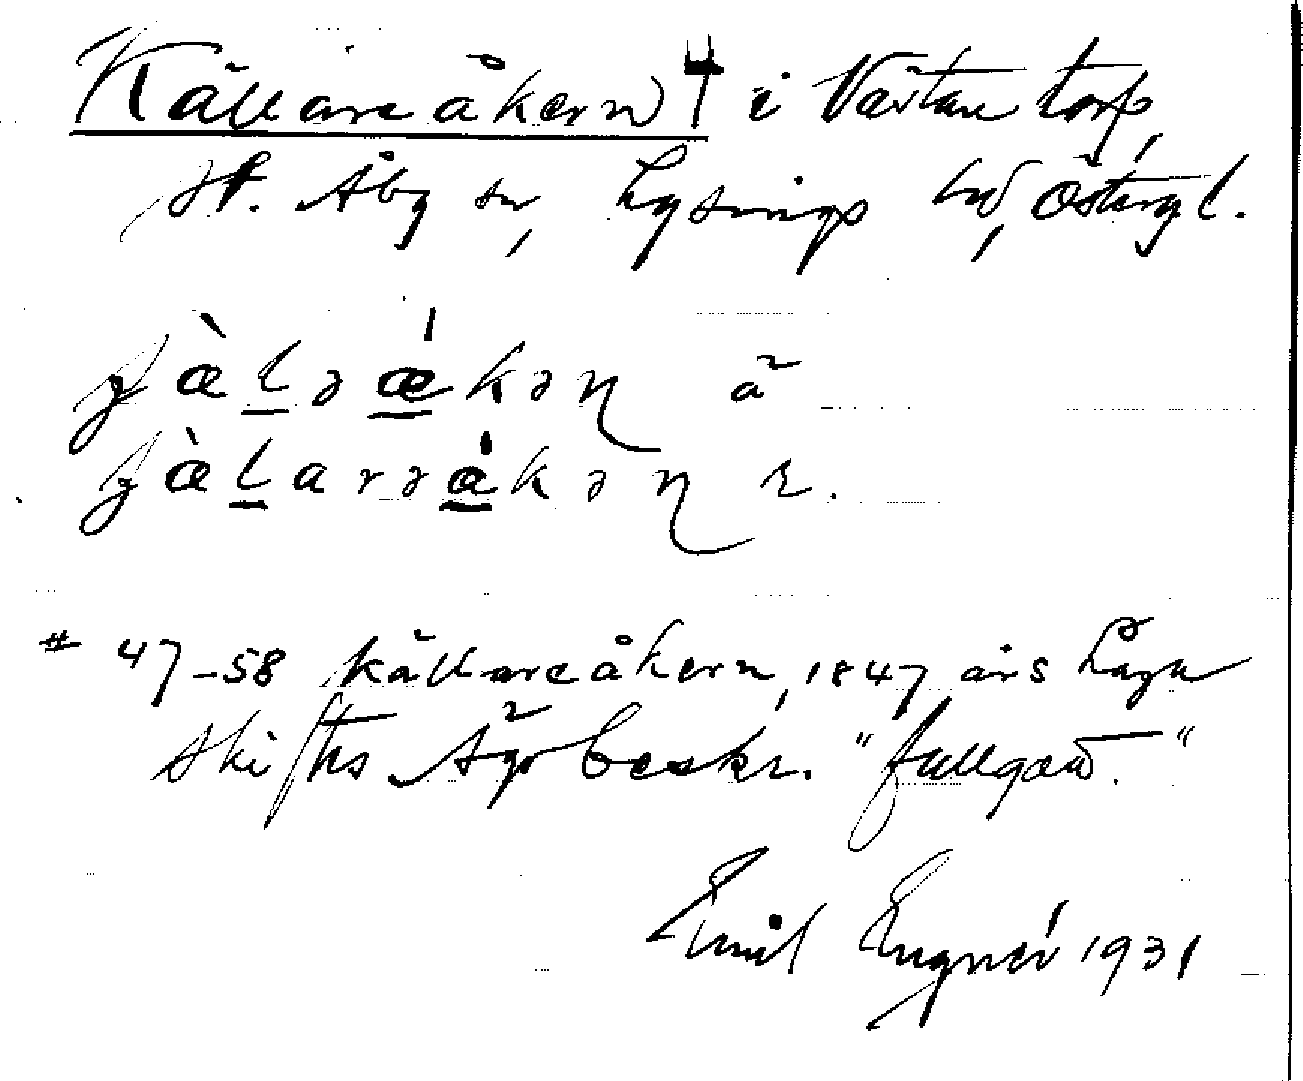 Källareåkern # i Västan torp,
St. Åby sn, Lysings hd, Östergl.
jæ̀l̲əǽ̲kəɳ ä
jæ̀l̲arəá̲kəɳ r.
# 47-58 Källareåkern, 1847 års Laga
skiftes Ägobeskr. "fullgod."
Emil Engnér 1931